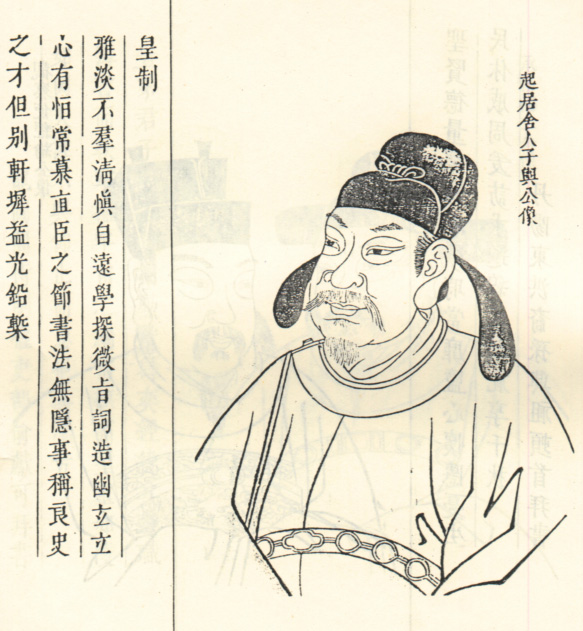 起居舍人子輿公像
皇制
雅淡不羣清愼自遠學探微㫖詞造幽𤣥立
心有怕常慕直臣之節書法無隱事稱良史
之才但别軒墀益光鉛槧